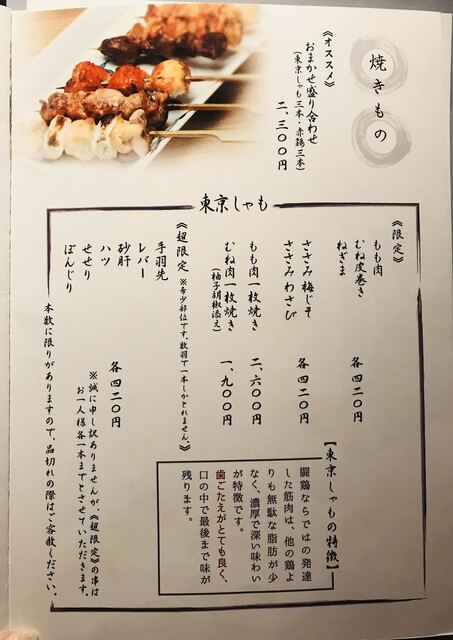 焼きもの
《オススメ》
おまかせ盛り合わせ
(東京しゃも三本・赤鶏三本)
二、三〇〇円
東京しゃも
《限定》
もも肉
むね皮巻き
ねぎま
各四二〇円
ささみ梅じそ
ささみわさび
各四二〇円
もも肉一枚焼き
二、六〇〇円
むね肉一枚焼き
(柚子胡椒添え)
一、九〇〇円
《超限定》
※希少部位です。数羽で一本しかとれません。
手羽先
レバー
砂肝
ハツ
せせり
ぼんじり
各四二〇円
※誠に申し訳ありませんが、《超限定》の串は
お一人様各一本までとさせていただきます。
本数に限りがありますので、品切れの際はご容赦ください。
【東京しゃもの特徴】
闘鶏ならではの発達
した筋肉は、他の鶏よ
りも無駄な脂肪が少
なく、濃厚で深い味わい
が特徴です。
歯ごたえがとても良く、
口の中で最後まで味が
残ります。